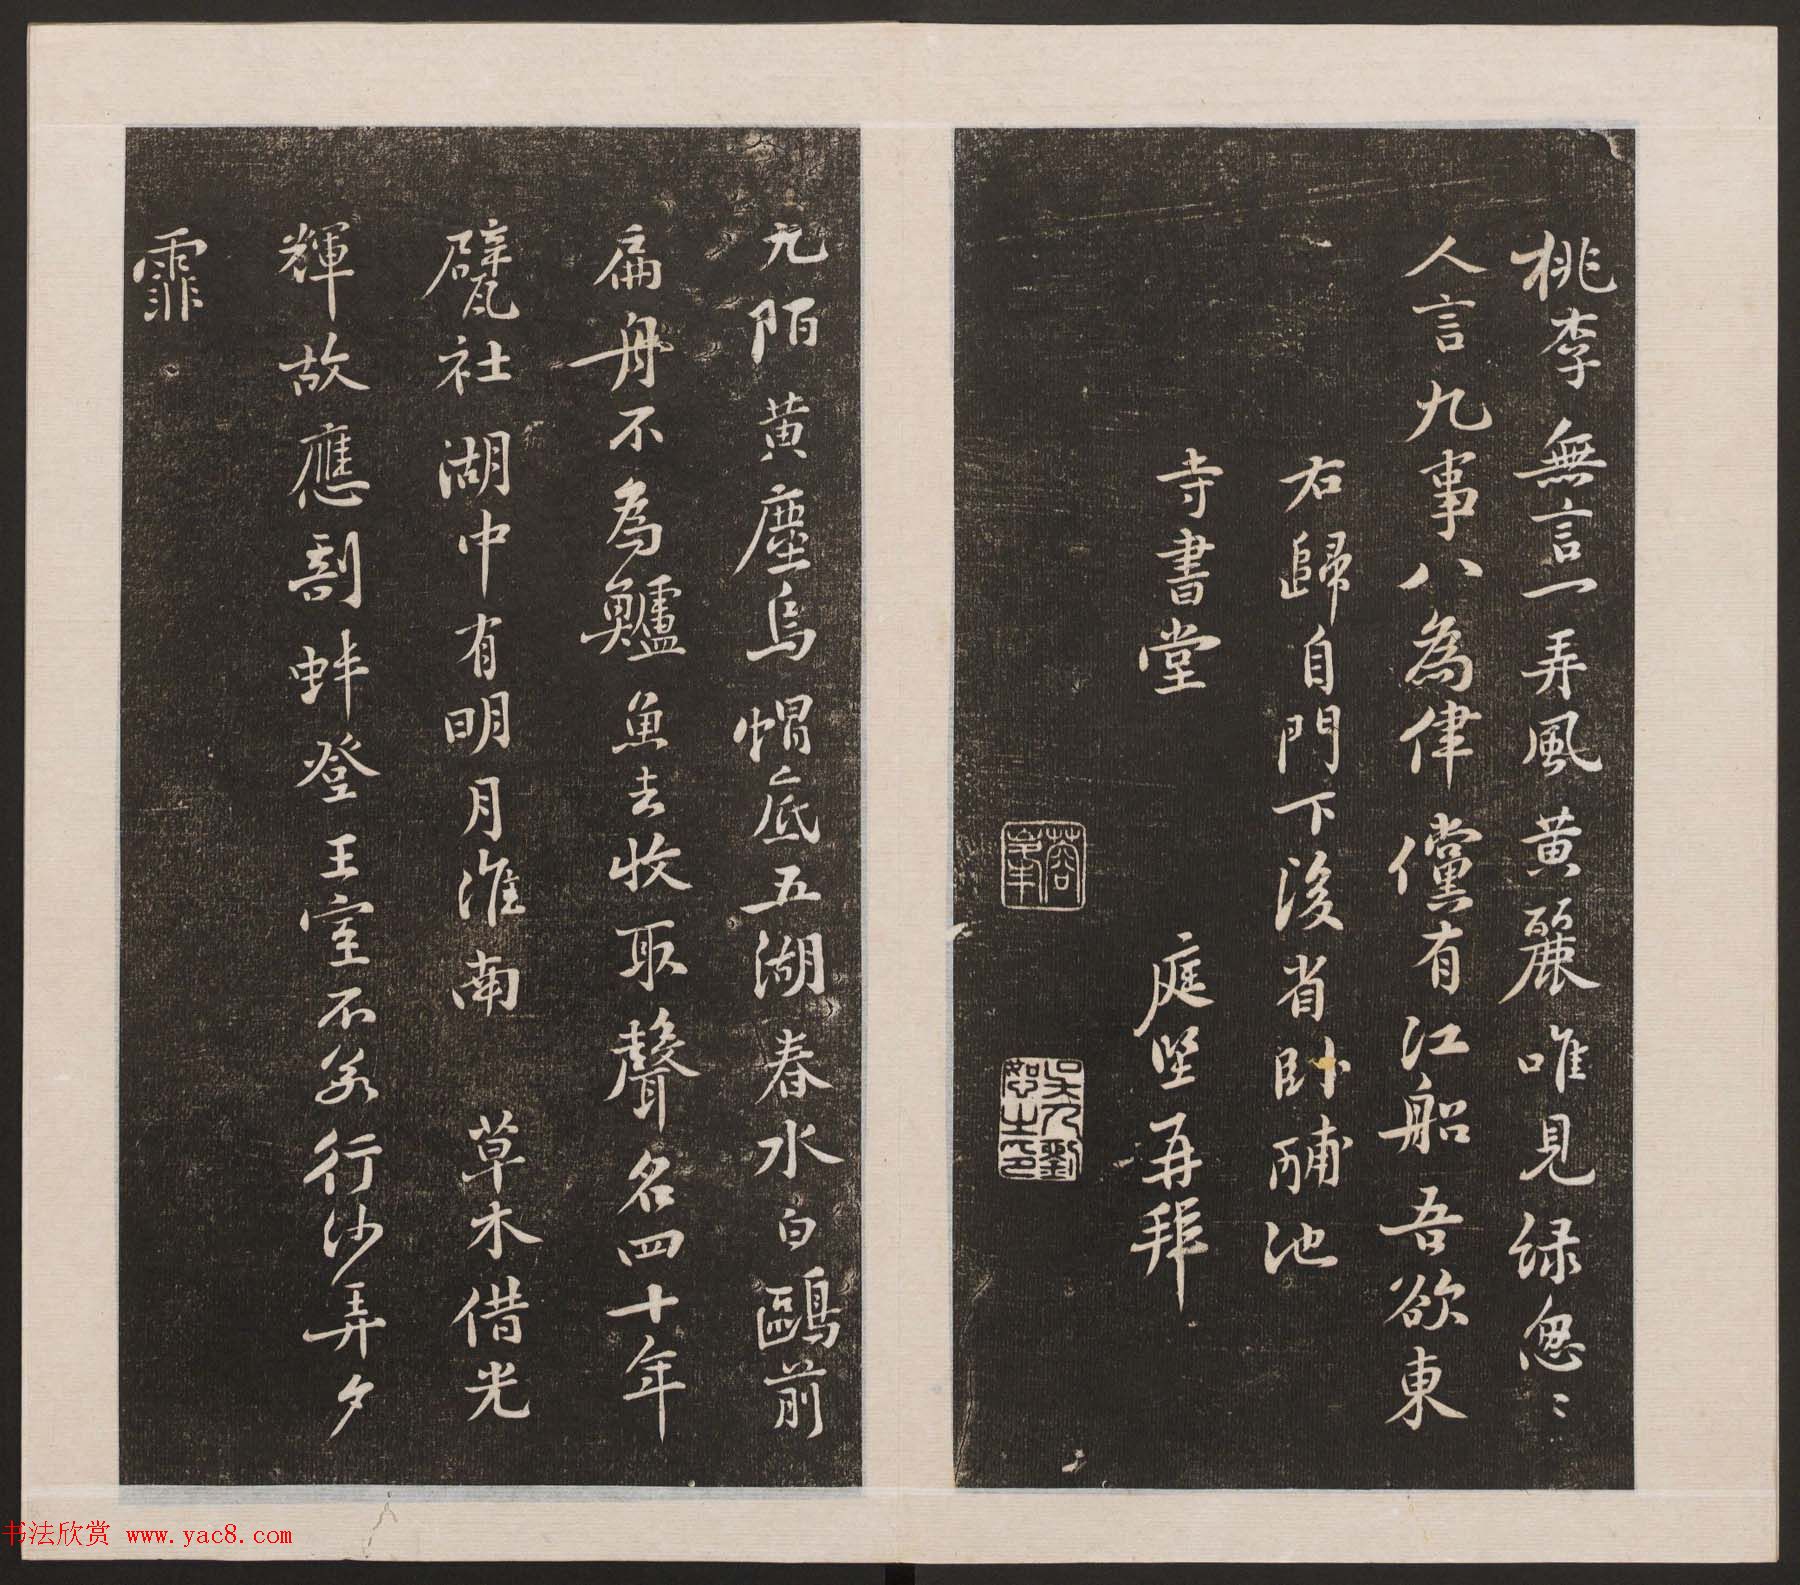 桃李無言一弄風黄麗唯見緑怱〻
人言九事八為律儻有江船吾欲東
右歸自門下後省卧酺池
寺書堂
庭堅再拜
蓉峯
吴人劉恕之印
九陌黄塵烏帽底五湖春水白鷗前
扁舟不為鱸魚去收取聲名四十年
甓社湖中有明月淮南草木借光
輝故應剖蚌登王室不若行沙弄夕
霏
书法欣赏 www.yac8.com